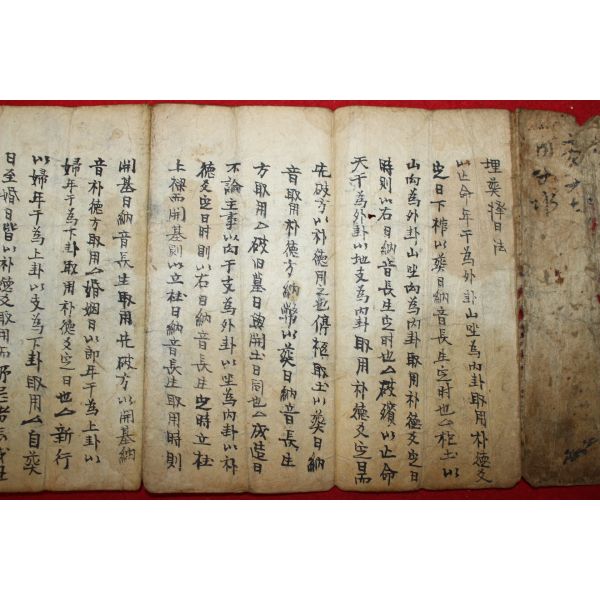 埋葬擇日法
以亡命年干為外卦山坐為内卦取用朴德爻
定日下棺以葬日納音長生定時也厶土以
山向為外卦山坐向為内卦取用朴德爻定日
時則以右日納音長生定時也厶破殯以亡命
天干為外卦以地支為内卦取用朴德爻定日而
先破方以朴德用之也停柩取土以葬日納
音取用朴德方納幣以葬日納音長生
方取用厶破旧墓日與開土日同也厶成造日
不論主事以内干支為外卦以坐為内卦以朴
德爻定日時則以右日納音長生定時立柱
上樑而開基則以立柱日納音長生取用時則
開基日納音長生取用先破方以開基納
音朴德方取用厶婚姻日以郎年干為上卦以
婦年干為下卦取用朴德爻定日也厶新行
以婦年干為上卦以支為下卦取用厶自葬
日至婚日皆以朴德爻取用而野老者云